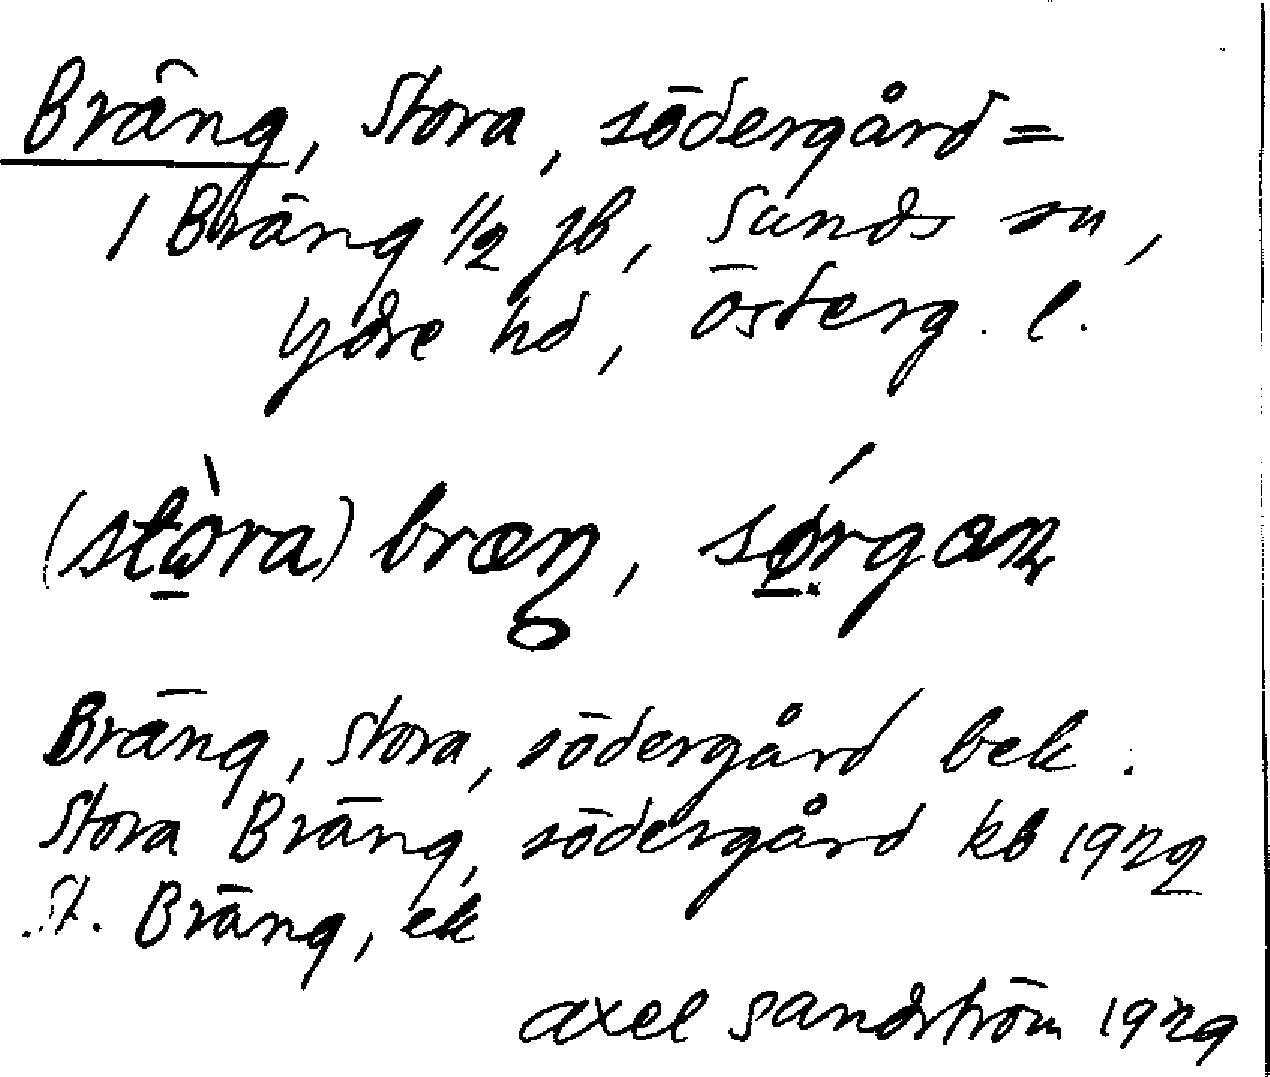 Bräng, Stora, södergård =
1 Bräng 1/2 jb, Sunds sn,
Ydre hd, Österg. l.
(stòra) bræŋ, sǿrgaɳ
Bräng, Stora, södergård bek.
Stora Bräng, södergård kb 1929
St. Bräng, ek
Axel Sandström 1929